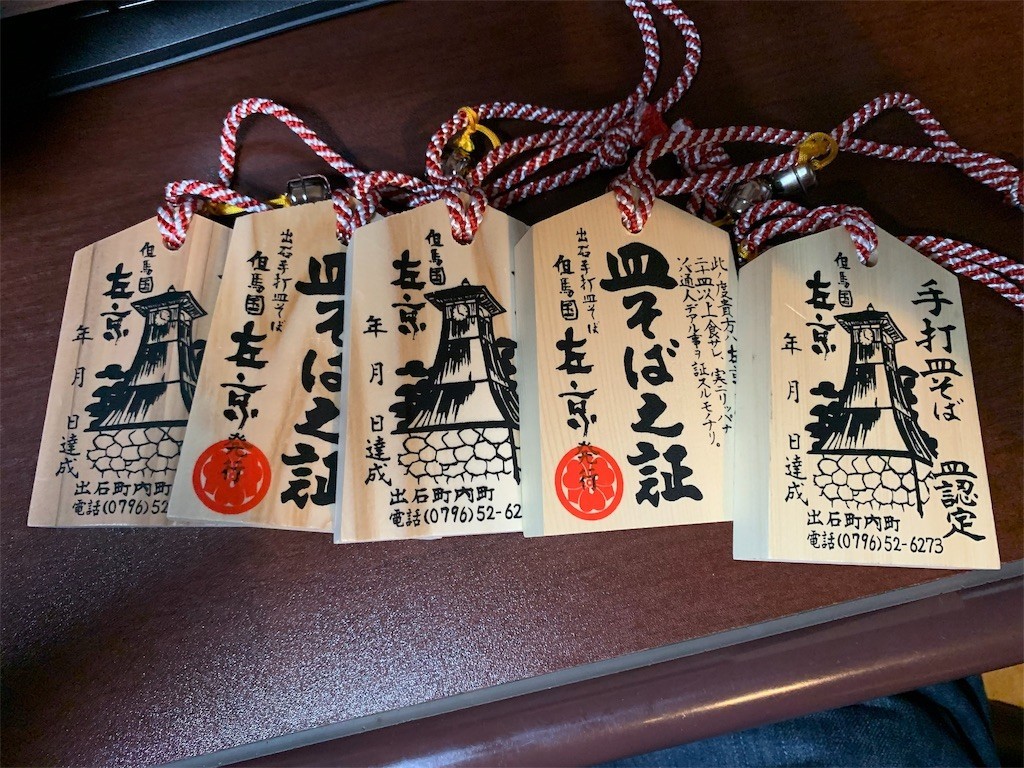 但馬国
左京
年 月 日達成
出石町内町
電話(0796)52
皿そば之証
出石手打皿そば
但馬国 左京 発行
但馬国
左京
年 月 日達成
出石町内町
電話(0796)52-62
此ノ度貴方ハ、左京
二十皿以上食サレ、実ニリッパナ
ソバ通人デアル事ヲ証スルモノナリ。
皿そば之証
出石手打皿そば
但馬国 左京 発行
手打皿そば 皿認定
但馬国
左京
年 月 日達成
出石町内町
電話(0796)52-6273